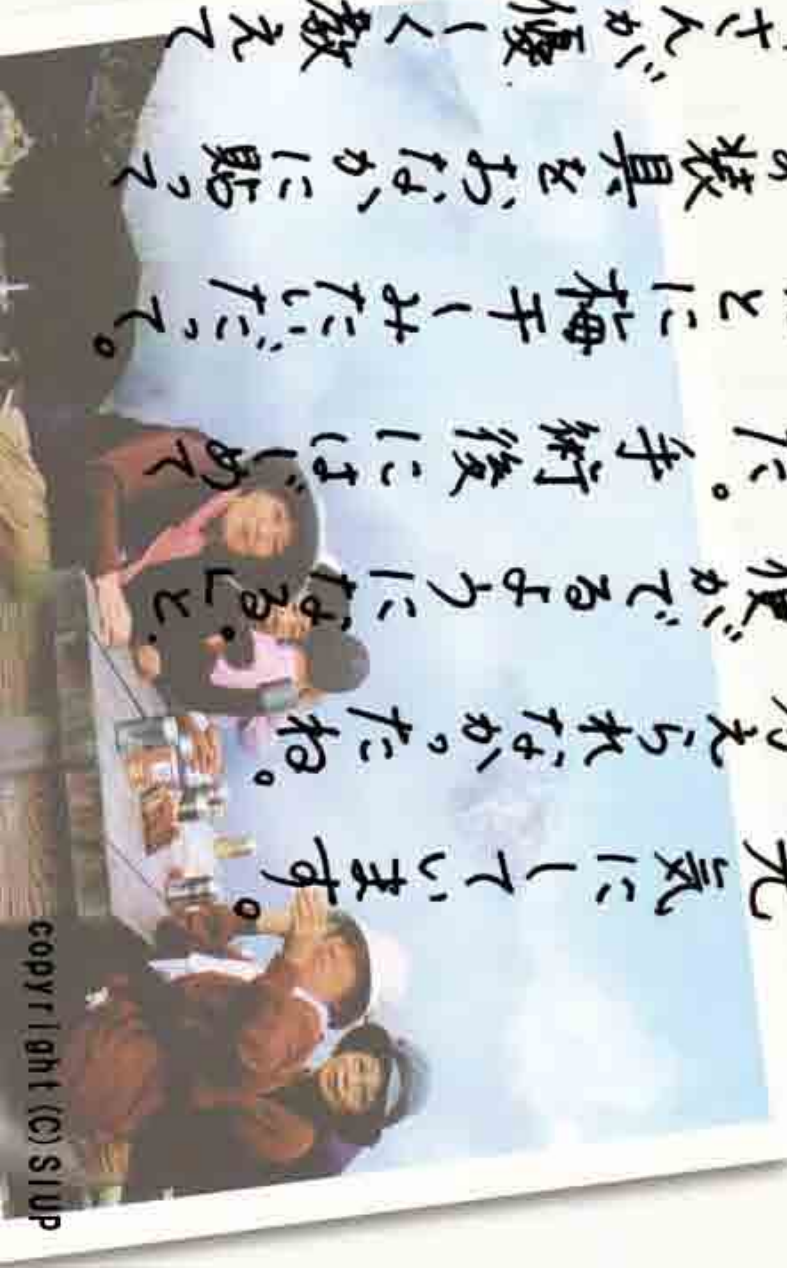 元気にしています。
えられなかったね。
便がでるようになる。」と、
た。手術後にはじめて
とに梅干しみたいだって。
装具をおなかに貼って
さんが優しく教えて
copyright (C) SIUP